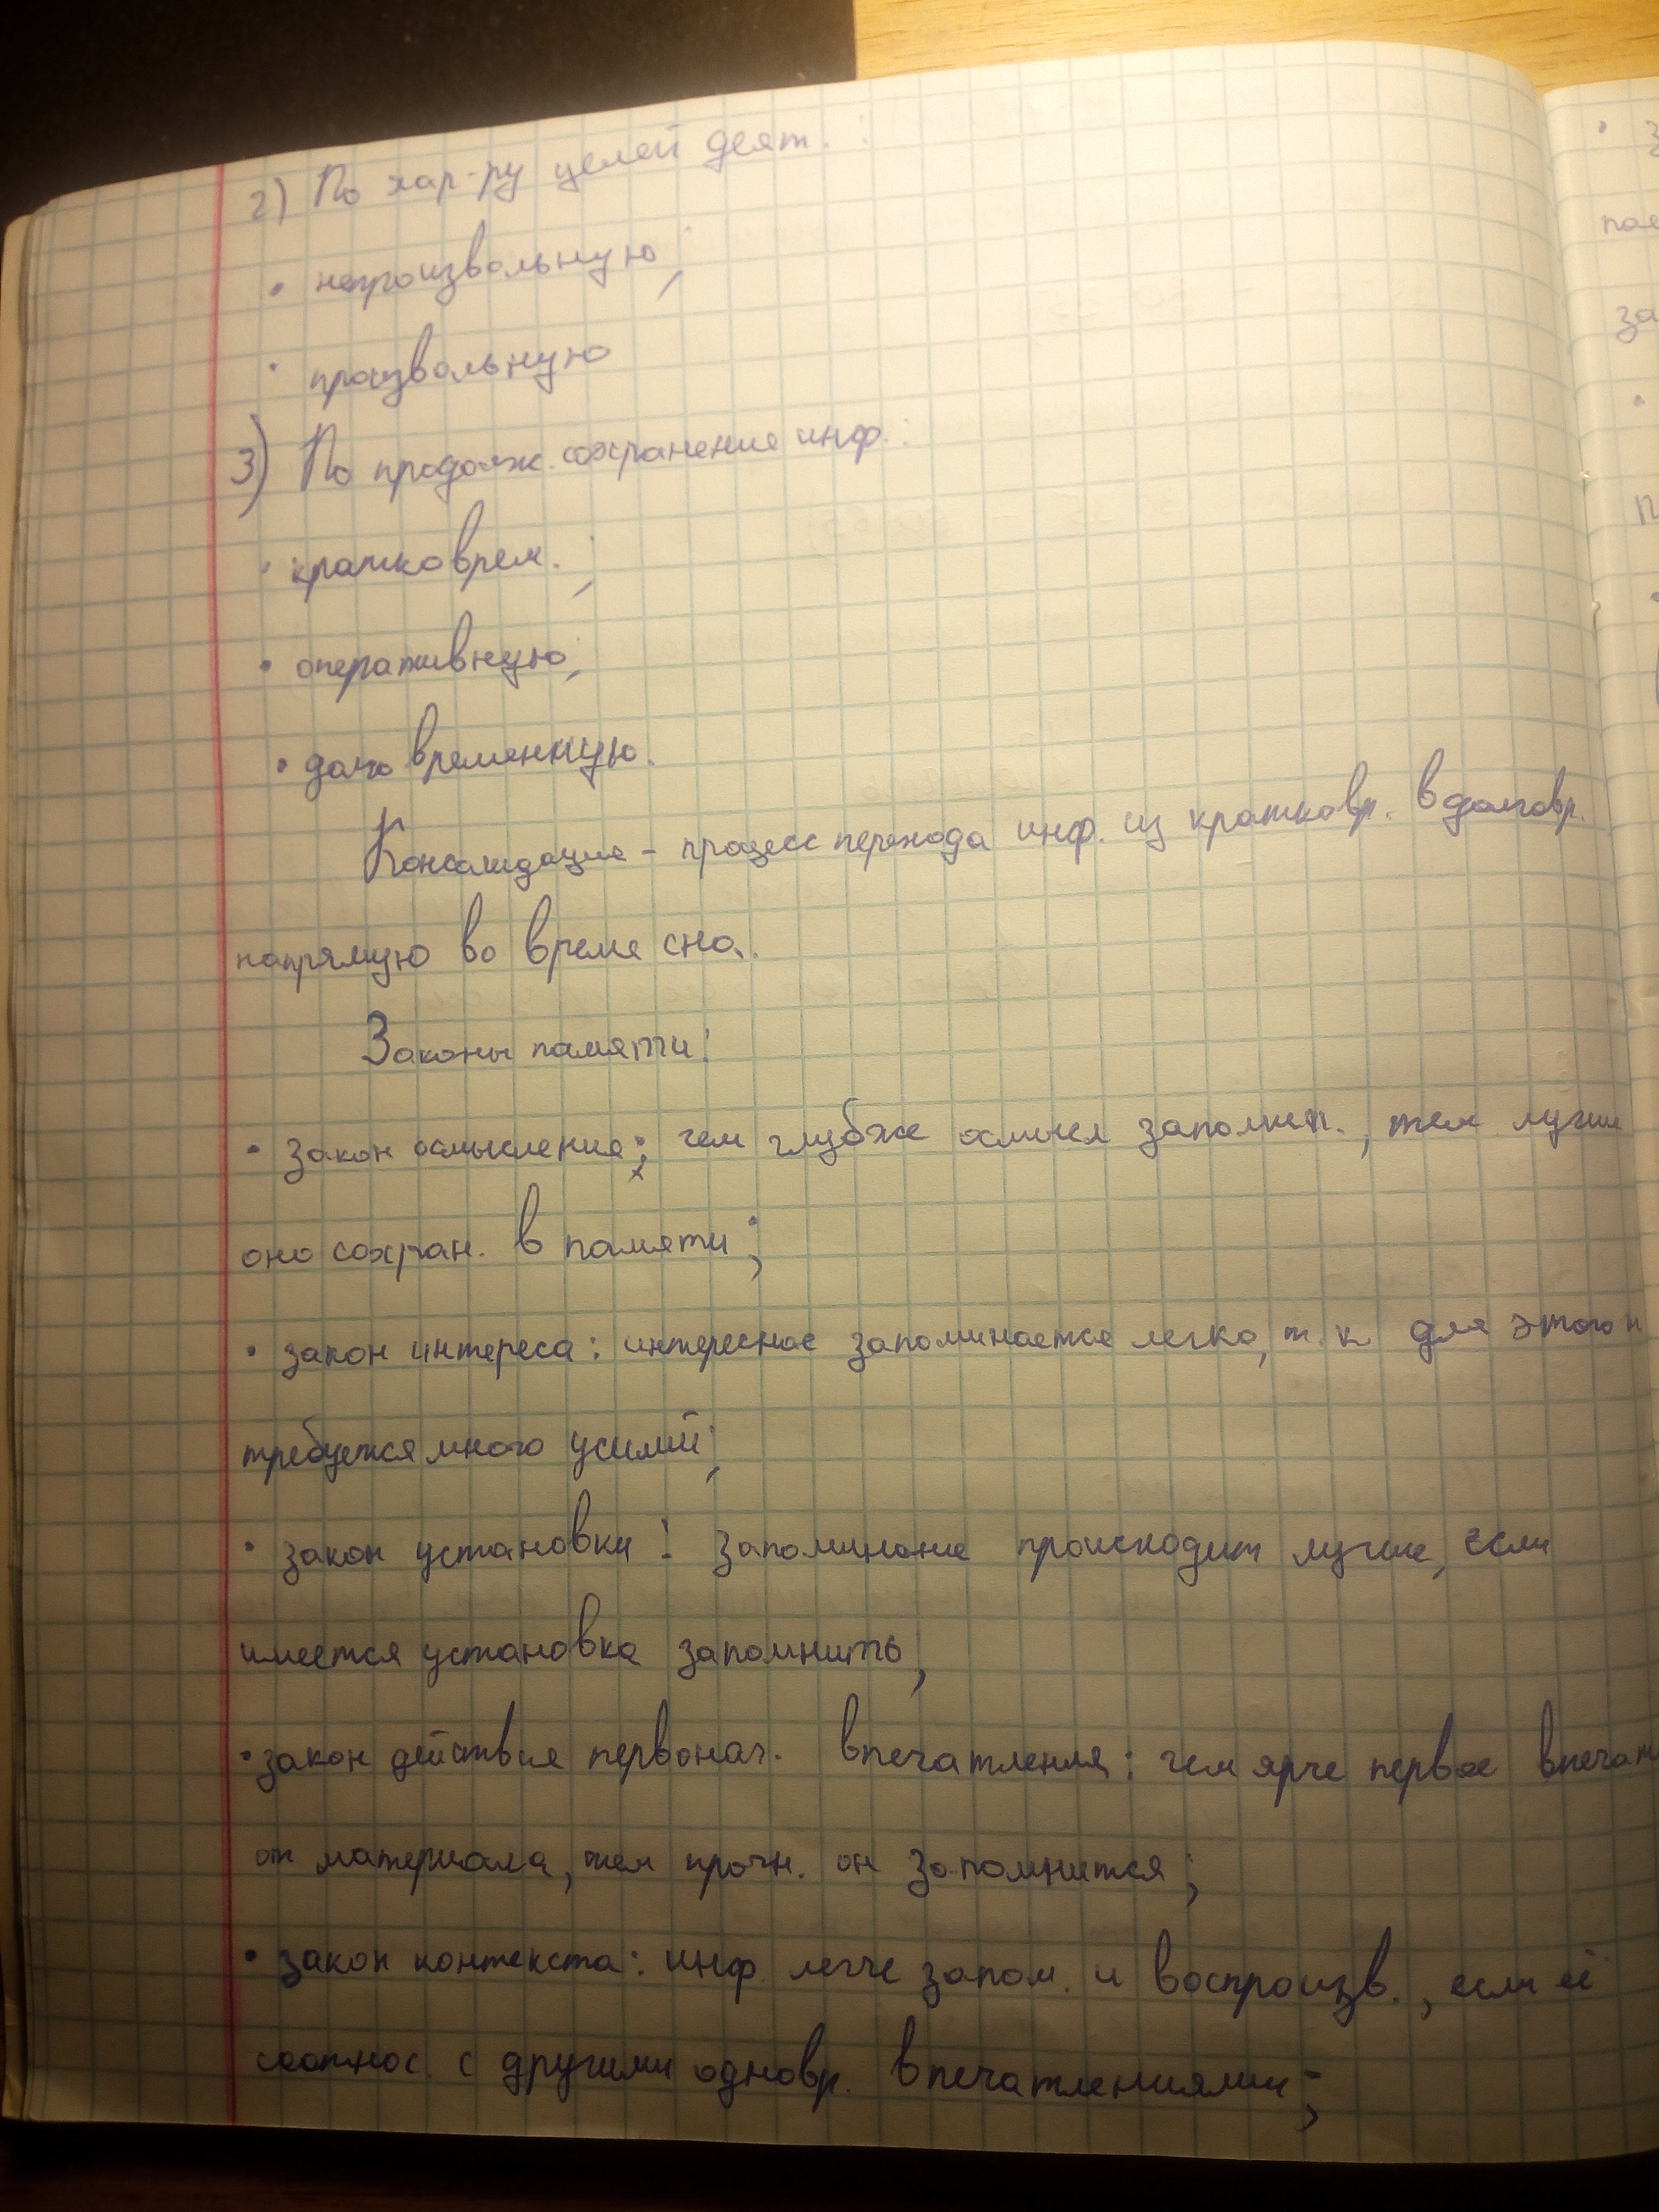 2) По хар-ру целей деят.:
• непроизвольную;
• произвольную
3) По продолж. сохранения инф.:
• кратковрем.;
• оперативную;
• долговременную.
Консолидация – процесс перехода инф. из кратковр. в долговр.
напрямую во время сна.
Законы памяти:
• закон осмысления: чем глубже осмысл запомин., тем лучше
оно сохран. в памяти;
• закон интереса: интересное запоминается легко, т.к для этого н
требуется много усилий;
• закон установки: запоминание происходит лучше, если
имеется установка запомнить;
• закон действия первонач. впечатления: чем ярче первое впечат
от материала, тем прочн. он запомнится;
• закон контекста: инф. легче запом. и воспроизв., если её
соотнос. с другими одновр. впечатлениями;
• з
за